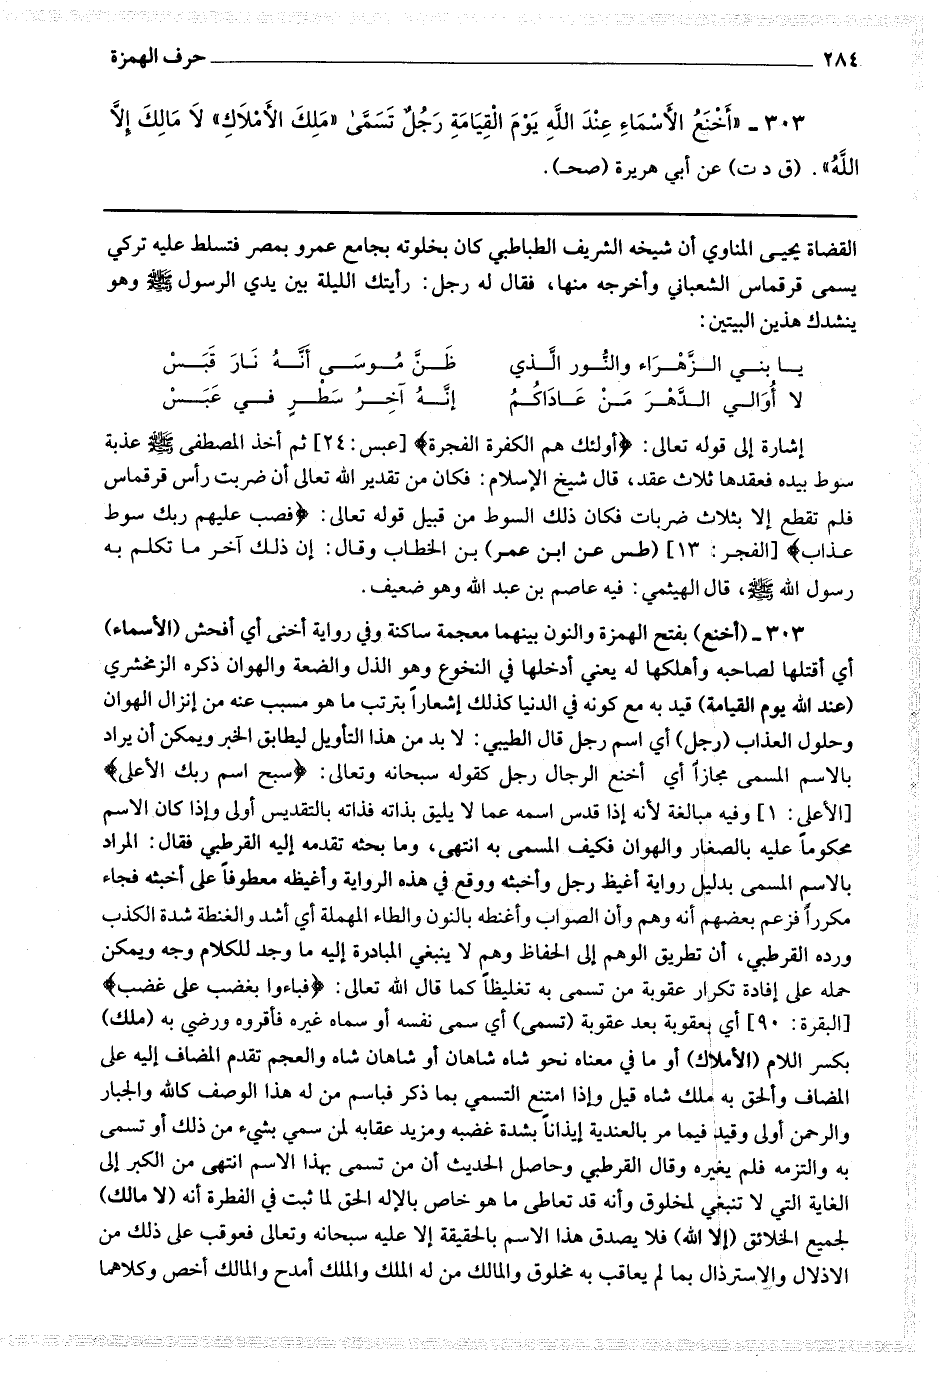 ٢٨٤ حرف الهمزة
٣٠٣ ـ «أَخْنَعُ الأَسْمَاءِ عِنْدَ اللَّهِ يَوْمَ الْقِيَامَةِ رَجُلٌ تَسَمَّىٰ «مَلِكَ الأَمْلَاكِ» لَا مَالِكَ إِلَّا
اللَّهُ». (ق د ت) عن أبي هريرة (صحـ).
القضاة يحيى المناوي أن شيخه الشريف الطباطبي كان بخلوته بجامع عمرو بمصر فتسلط عليه تركي
يسمى قرقماس الشعباني وأخرجه منها، فقال له رجل: رأيتك الليلة بين يدي الرسول ﷺ وهو
ينشدك هذين البيتين:
يـا بنـي الـزَّهْـرَاء والنُّـور الَّـذي ظَـنَّ مُـوسَـى أَنَّـهُ نَـارَ قَبَـسْ
لا أُوَالـي الـدَّهْـرَ مَـنْ عَـادَاكُـمُ إنَّـهُ آخِـرُ سَطْـرٍ فـي عَبَـسْ
إشارة إلى قوله تعالى: ﴿أولئك هم الكفرة الفجرة﴾ [عبس: ٢٤] ثم أخذ المصطفى ﷺ عذبة
سوط بيده فعقدها ثلاث عقد، قال شيخ الإسلام: فكان من تقدير الله تعالى أن ضربت رأس قرقماس
فلم تقطع إلا بثلاث ضربات فكان ذلك السوط من قبيل قوله تعالى: ﴿فصب عليهم ربك سوط
عذاب﴾ [الفجر: ١٣] (طس عن ابن عمر) بن الخطاب وقال: إن ذلك آخر ما تكلم به
رسول الله ﷺ، قال الهيثمي: فيه عاصم بن عبد الله وهو ضعيف.
٣٠٣ ـ (أخنع) بفتح الهمزة والنون بينهما معجمة ساكنة وفي رواية أخنى أي أفحش (الأسماء)
أي أقتلها لصاحبه وأهلكها له يعني أدخلها في النخوع وهو الذل والضعة والهوان ذكره الزمخشري
(عند الله يوم القيامة) قيد به مع كونه في الدنيا كذلك إشعاراً بترتب ما هو مسبب عنه من إنزال الهوان
وحلول العذاب (رجل) أي اسم رجل قال الطيبي: لا بد من هذا التأويل ليطابق الخبر ويمكن أن يراد
بالاسم المسمى مجازاً أي أخنع الرجال رجل كقوله سبحانه وتعالى: ﴿سبح اسم ربك الأعلى﴾
[الأعلى: ١] وفيه مبالغة لأنه إذا قدس اسمه عما لا يليق بذاته فذاته بالتقديس أولى وإذا كان الاسم
محكوماً عليه بالصغار والهوان فكيف المسمى به انتهى، وما بحثه تقدمه إليه القرطبي فقال: المراد
بالاسم المسمى بدليل رواية أغيظ رجل وأخبثه ووقع في هذه الرواية وأغيظه معطوفاً على أخبثه فجاء
مكرراً فزعم بعضهم أنه وهم وأن الصواب وأغنطه بالنون والطاء المهملة أي أشد والغنطة شدة الكذب
ورده القرطبي، أن تطريق الوهم إلى الحفاظ وهم لا ينبغي المبادرة إليه ما وجد للكلام وجه ويمكن
حمله على إفادة تكرار عقوبة من تسمى به تغليظاً كما قال الله تعالى: ﴿فباءوا بغضب على غضب﴾
[البقرة: ٩٠] أي بعقوبة بعد عقوبة (تسمى) أي سمى نفسه أو سماه غيره فأقروه ورضي به (ملك)
بكسر اللام (الأملاك) أو ما في معناه نحو شاه شاهان أو شاهان شاه والعجم تقدم المضاف إليه على
المضاف وألحق به ملك شاه قيل وإذا امتنع التسمي بما ذكر فباسم من له هذا الوصف كالله والجبار
والرحمن أولى وقيد فيما مر بالعندية إيذاناً بشدة غضبه ومزيد عقابه لمن سمي بشيء من ذلك أو تسمى
به والتزمه فلم يغيره وقال القرطبي وحاصل الحديث أن من تسمى بهذا الاسم انتهى من الكبر إلى
الغاية التي لا تنبغي لمخلوق وأنه قد تعاطى ما هو خاص بالإله الحق لما ثبت في الفطرة أنه (لا مالك)
لجميع الخلائق (إلا الله) فلا يصدق هذا الاسم بالحقيقة إلا عليه سبحانه وتعالى فعوقب على ذلك من
الاذلال والاسترذال بما لم يعاقب به مخلوق والمالك من له الملك والملك أمدح والمالك أخص وكلاهما